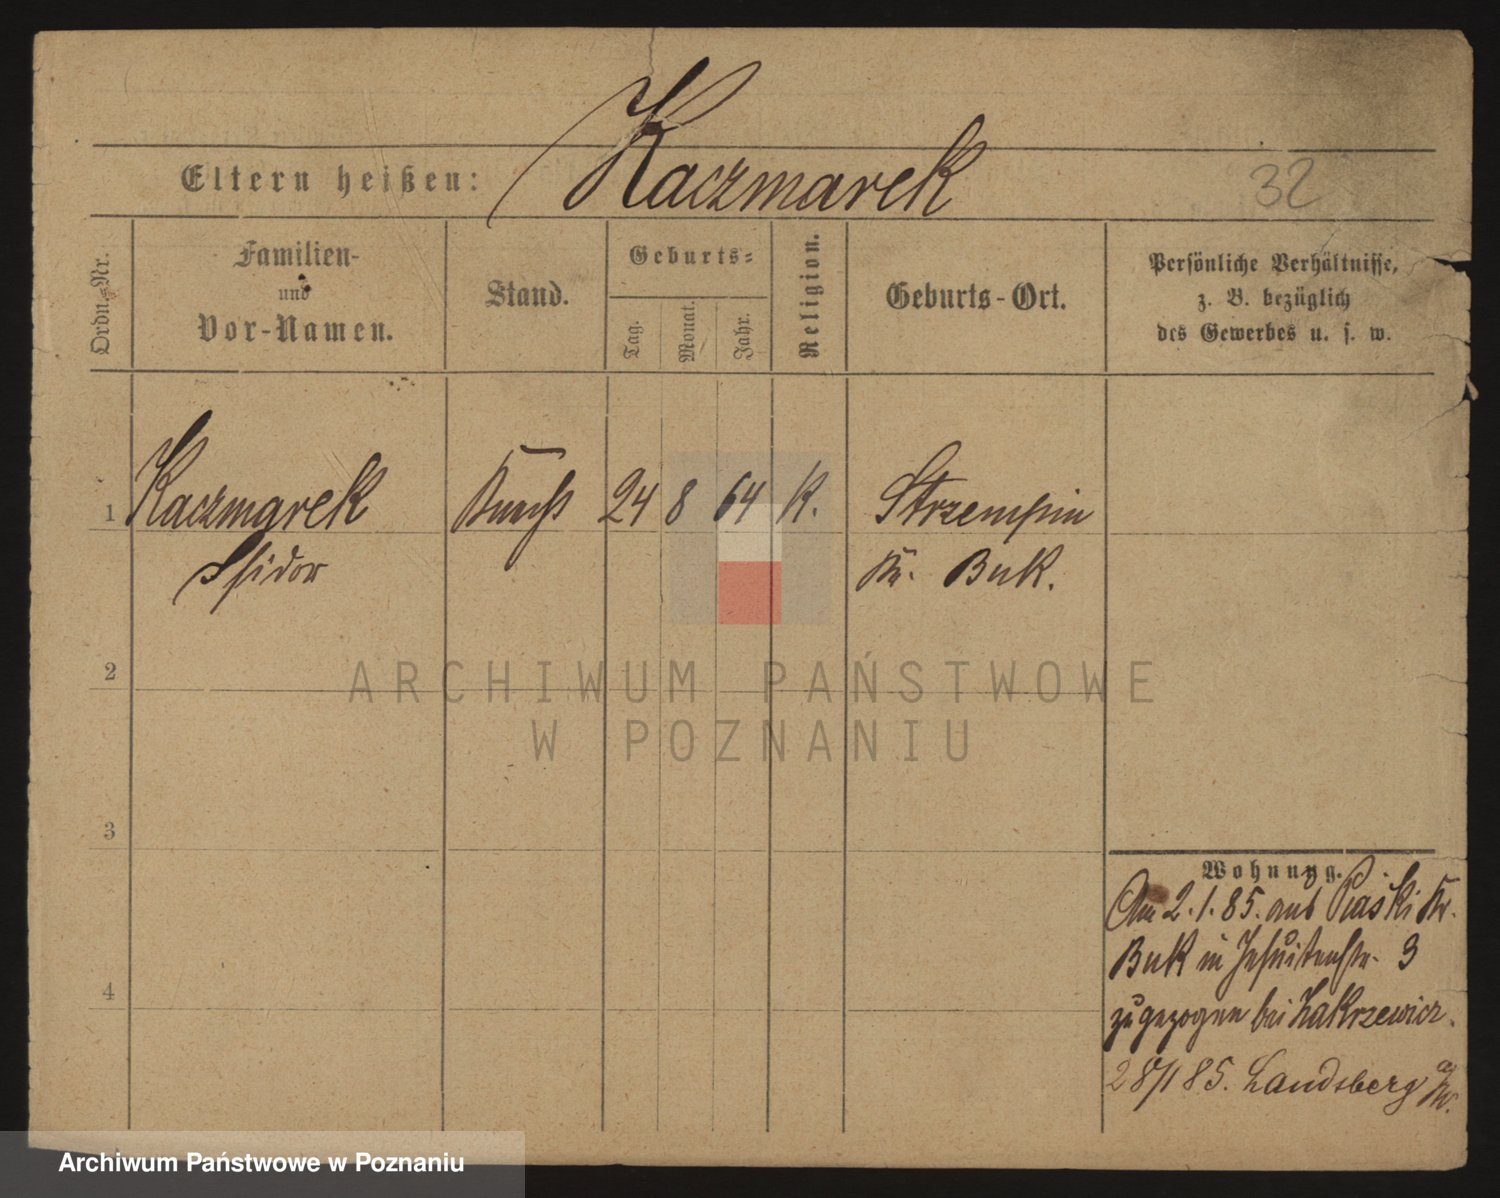 Eltern heißen: Kaczmarek
32
Ordn.-Nr.
Familien-
und
Vor-Namen.
Stand.
Geburts-
Tag.
Monat.
Jahr.
Religion.
Geburts-Ort.
Persönliche Verhältnisse,
z. B. bezüglich
des Gewerbes u. s. w.
1 Kaczmarek Knecht 24 8 64 K. Strzempin
Isidor Kr. Buk.
2
ARCHIWUM PAŃSTWOWE
W POZNANIU
3
Wohnung.
Am 2.1.85. aus Piaski Kr.
Buk in Jesuitenstr. 3
4
zugezogen bei Zakrzewicz.
28/1 85. Landsberg a/W.
Archiwum Państwowe w Poznaniu